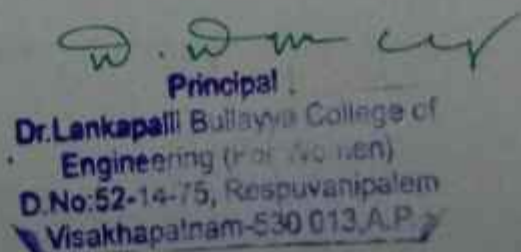 Principal.
Dr.Lankapalli Bullayya College of
Engineering (For Women)
D.No:52-14-75, Respuvanipalem
Visakhapatnam-530 013,A.P